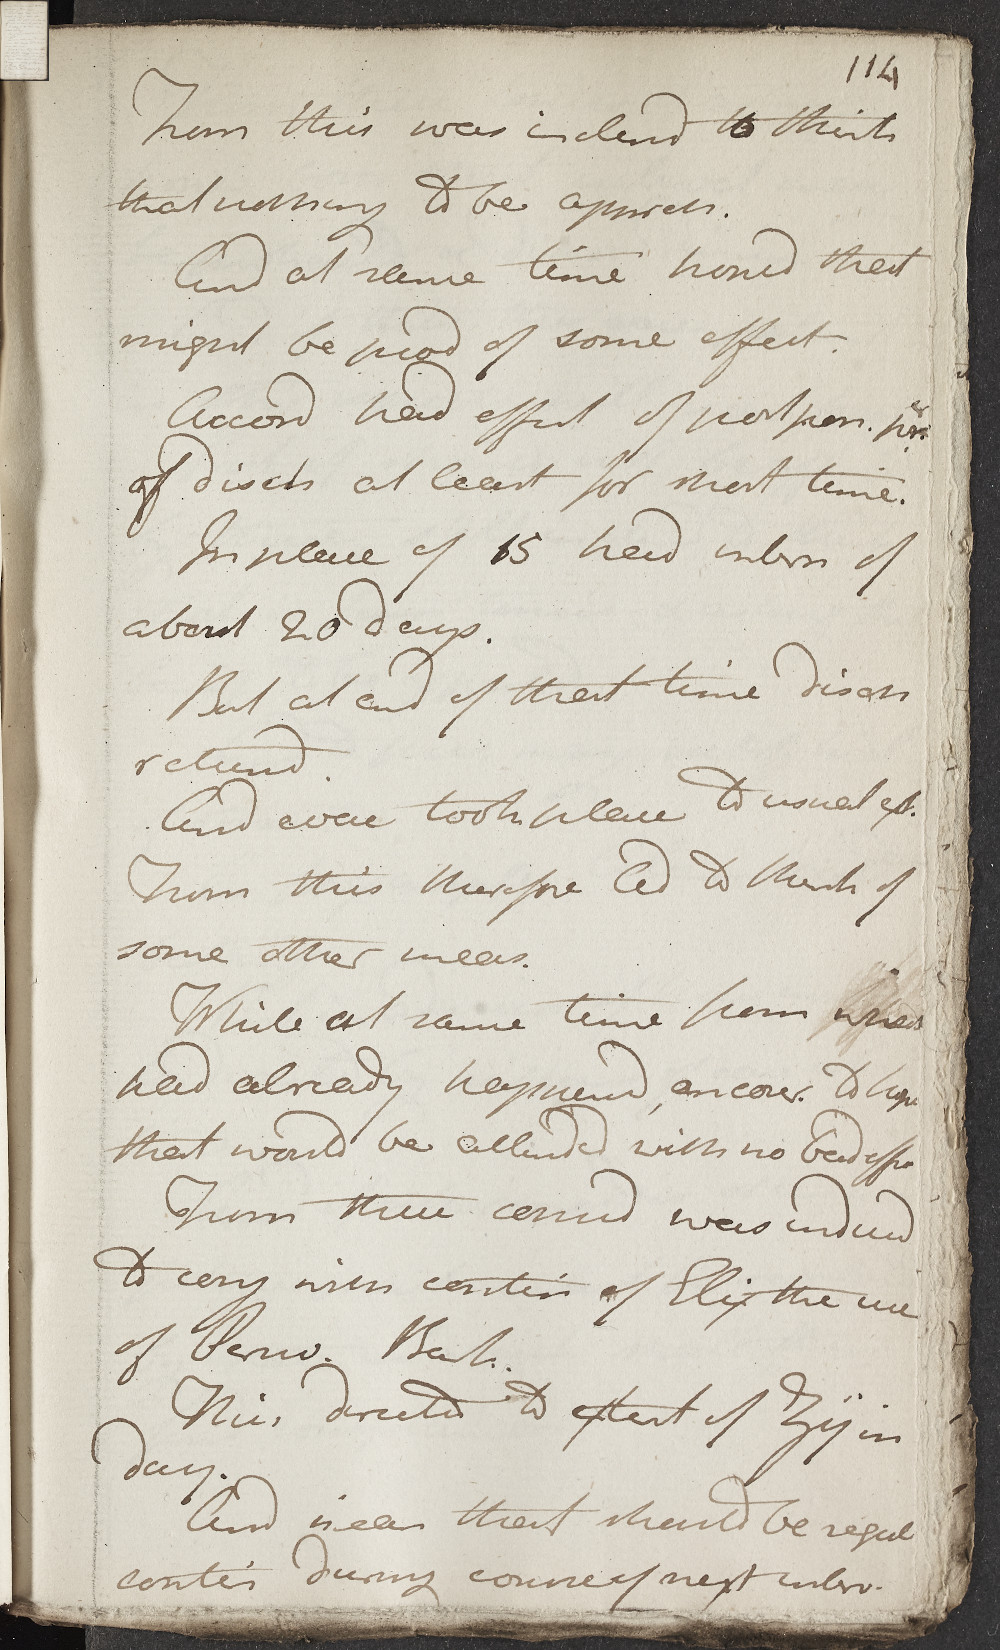 114
From this was inclend to think
that nothing to be appreh.
And at same time hoped that
might be prod of some effect.
Accord had effect of postpon.
of Disch at least for short time.
In place of 15 had interv of
about 20 days.
But at end of that time Disch
returnd.
And even took place to usual ext.
From this therefore led to think of
some other meas.
While at same time from what
had already happend, encour. to hope
that would be attended with no bad effe
From these consid was inducd
to conj with contin of Elix the use
of Peruv. Bark.
This directed to extent of ʒij in
day.
And mean that should be regul
contin During course of next interv.